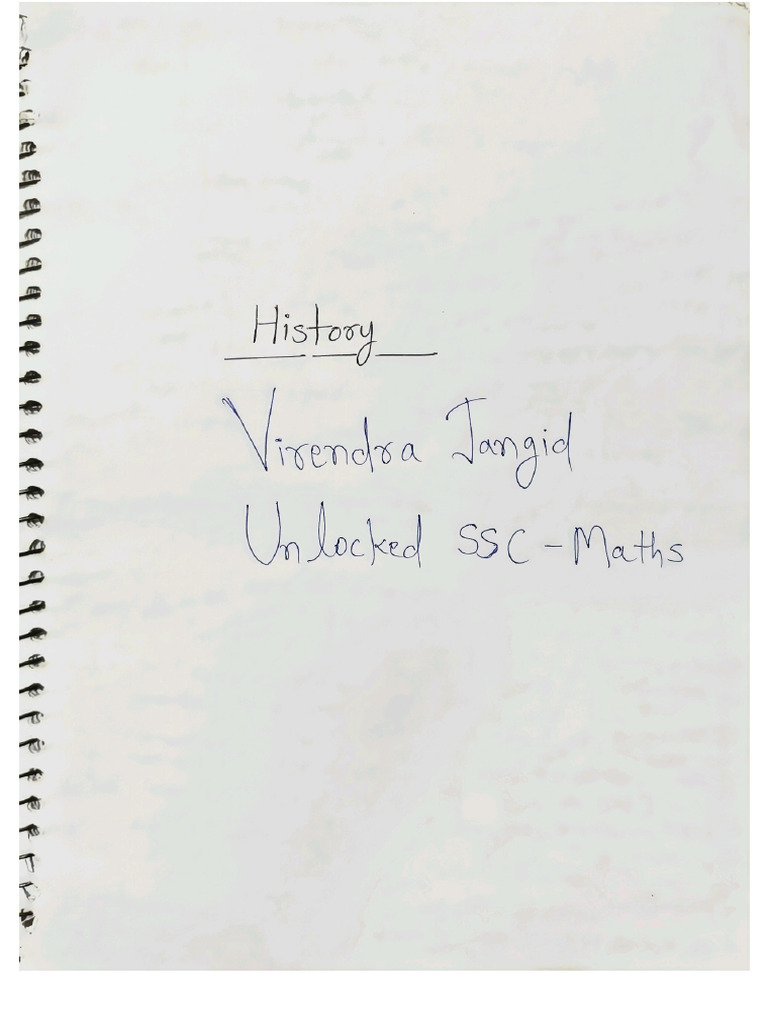 History
Virendra Jangid
Unlocked SSC - Maths